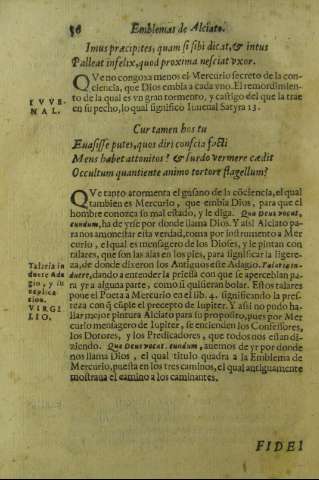 56 Emblemas de Alciato.
Imus præcipites, quam si sibi dicat, & intus
Palleat infelix, quod proxima nesciat vxor.
QVe no congoxa menos el Mercurio secreto de la con-
ciencia, que Dios embia a cada vno. El remordimien-
to de la qual es vn gran tormento, y castigo del que la trae
en su pecho, lo qual significo Iuuenal Satyra 13.
IVVE-
NAL.
Cur tamen hos tu
Euasisse putes, quos diri conscia facti
Mens habet attonitos? & surdo vermere cædit
Occultum quantiente animo tortore flagellum?
QVe tanto atormenta el gusano de la cõciencia, el qual
tambien es Mercurio, que embia Dios, para que el
hombre conozca su mal estado, y le diga. Quo Deus vocat,
eundum, ha de yrse por donde llama Dios. Y assi Alciato pa-
ra nos amonestar esta verdad, toma por instrumento a Mer
curio, el qual es mensagero de los Dioses, y le pintan con
talares, que son las alas en los pies, para significar la ligere-
za, de donde dixeron los Antiguos este Adagio. Talaria in-
duere, dando a entender la priessa con que se aperceban pa-
ra yr a alguna parte, como si quisieran bolar. Estos talares
pone el Poeta a Mercurio en el lib. 4. significando la pres-
teza con q̃ cumple el precepto de Iupiter. Y assi no pudo ha-
llar mejor pintura Alciato para su proposito, pues por Mer
curio mensagero de Iupiter, se entienden los Confessores,
los Dotores, y los Predicadores, que todos nos estan di-
ziendo. Quo Deus vocat. eundum, auemos de yr por donde
nos llama Dios, el qual titulo quadra a la Emblema de
Mercurio, puesta en los tres caminos, el qual antiguamente
mostraua el camino a los caminantes.
Talaria in
duere Ada
gio, y su
explica
cion.
VIRGI
LIO.
FIDEI